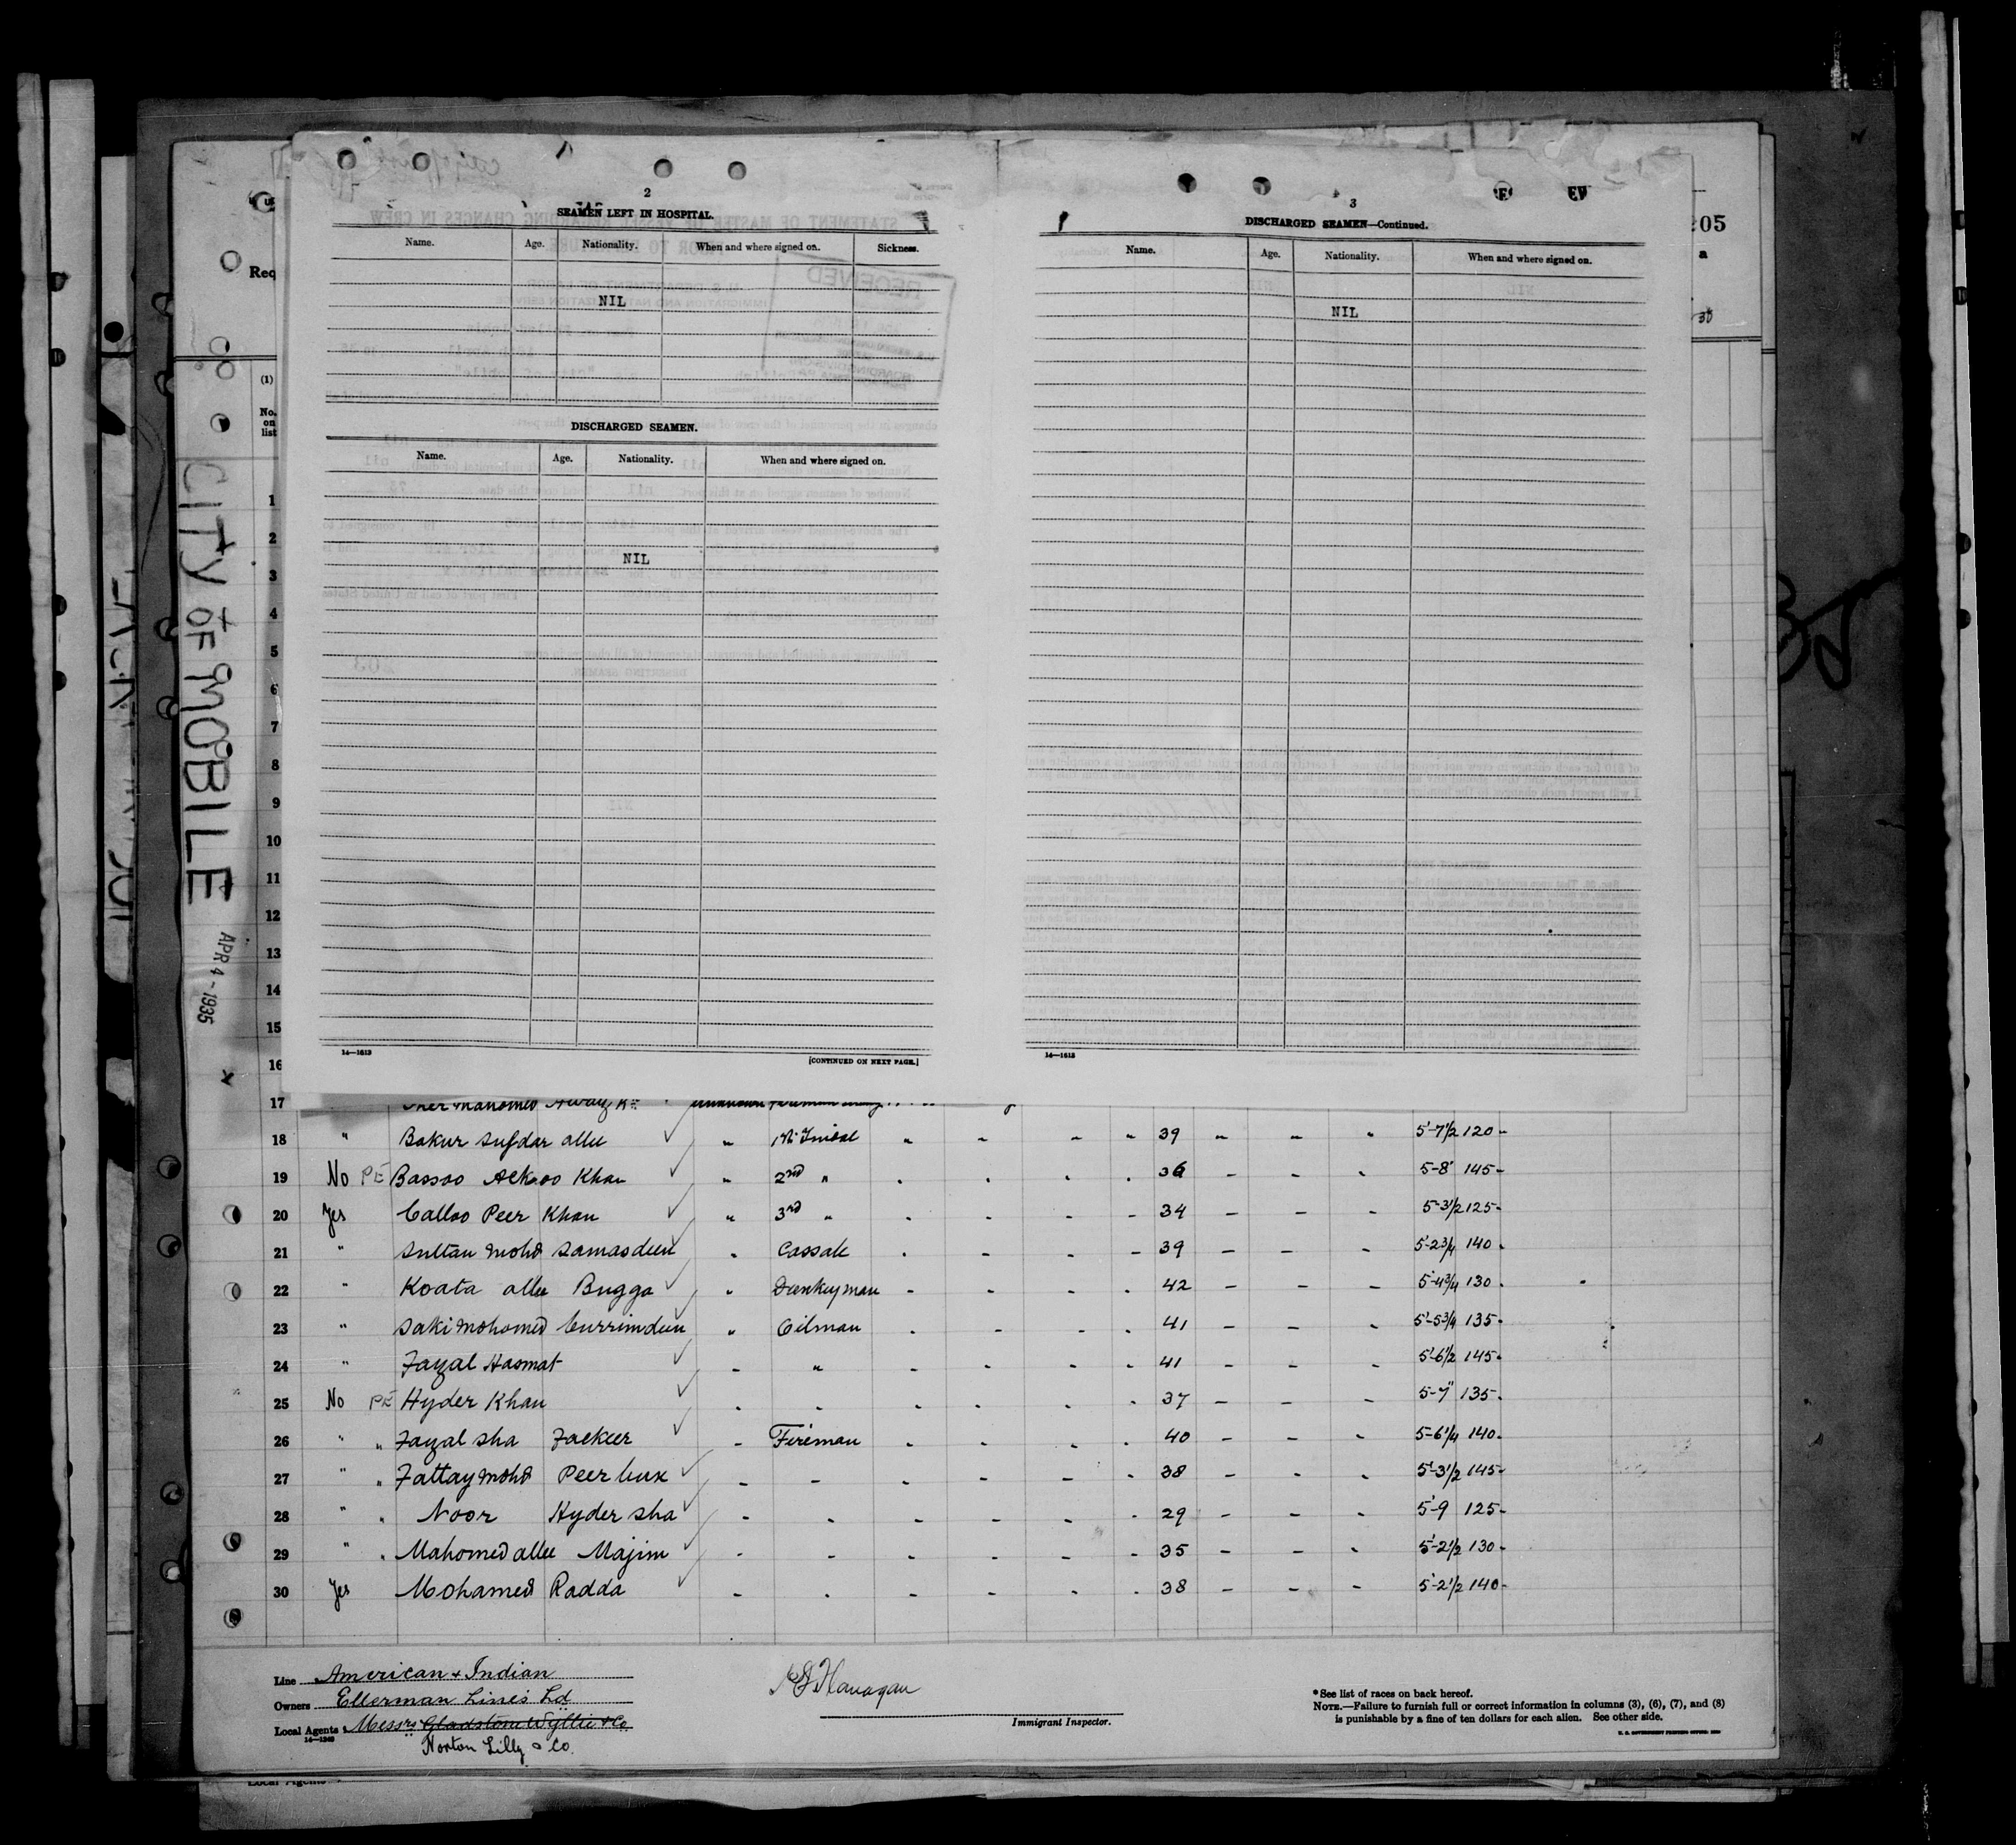 CITY OF MOBILE
APR 4 - 1935
2
SEAMEN LEFT IN HOSPITAL.
Name. Age. Nationality. When and where signed on. Sickness.
NIL
DISCHARGED SEAMEN.
Name. Age. Nationality. When and where signed on.
NIL
14—1613
[CONTINUED ON NEXT PAGE.]
3
DISCHARGED SEAMEN—Continued.
Name. Age. Nationality. When and where signed on.
NIL
14—1613
05
a
Req
(1)
No. on list
1
2
3
4
5
6
7
8
9
10
11
12
13
14
15
16
17
18 " Bakur Sufdar allee " 1st Tindal " " " " 39 " " " 5'-7 1/2 120
19 No PE Bassoo Ackoo Khan " 2nd " 36 5-8 145
20 Yes Calloo Peer Khan " 3rd " 34 5-3 1/2 125
21 " Sultan Mohd Samasdeen " Cassab 39 5-2 3/4 140
22 " Koata allee Bugga " Dunkeyman 42 5-4 3/4 130
23 " Saki Mohomed Currimdeen " Oilman 41 5-5 3/4 135
24 " Fazal Hasmat " 41 5-6 1/2 145
25 No PE Hyder Khan 37 5-7" 135
26 " " Fazal Sha Fackeer Fireman 40 5-6 1/4 140
27 " " Fattay Mohd Peer bux 38 5-3 1/2 145
28 " " Noor Hyder Sha 29 5-9 125
29 " " Mahomed allee Majim 35 5-2 1/2 130
30 Yes Mohamed Radda 38 5-2 1/2 140
Line American & Indian
Owners Ellerman Lines Ld
Local Agents Messrs Gladstone Wyllie & Co
14—1240
Norton Lilly & Co.
Flanagan
Immigrant Inspector.
* See list of races on back hereof.
NOTE.—Failure to furnish full or correct information in columns (3), (6), (7), and (8)
is punishable by a fine of ten dollars for each alien. See other side.
Local Agents